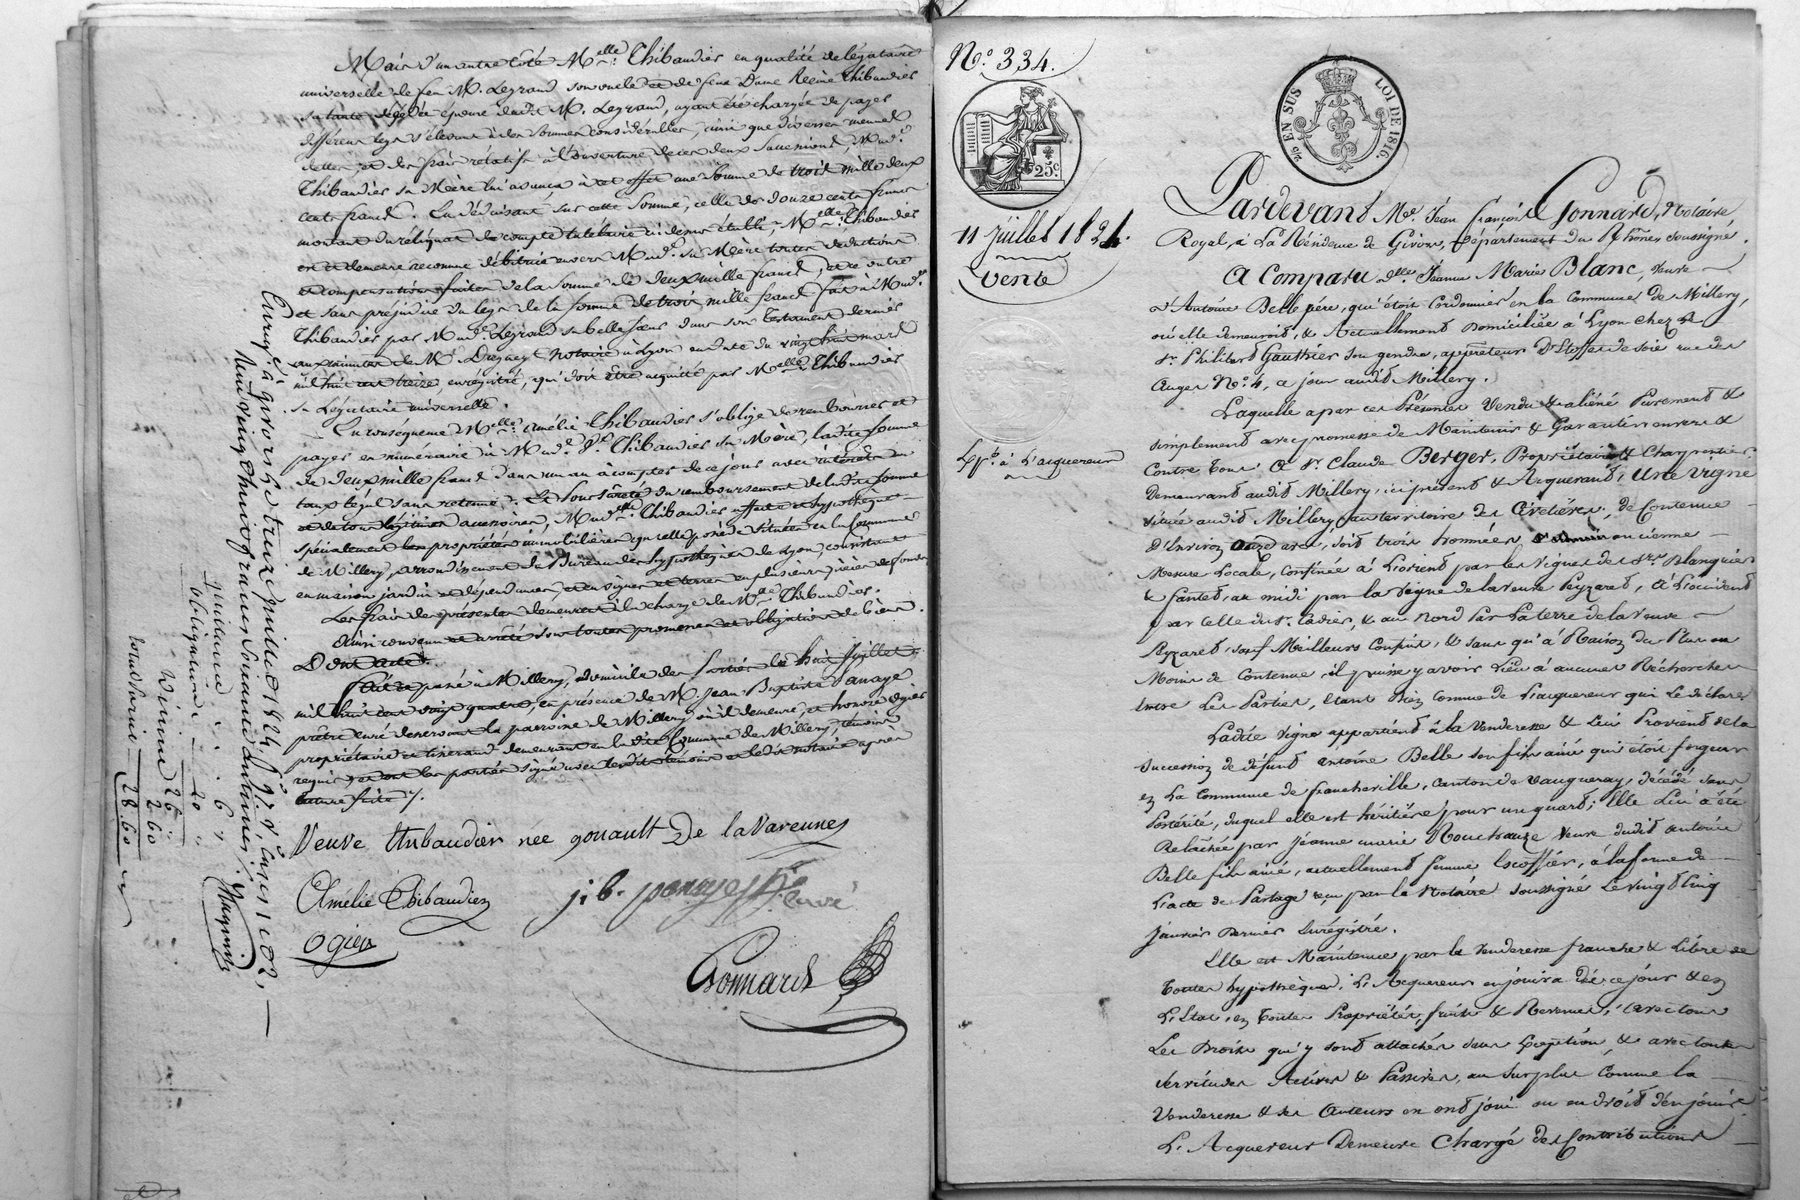 Mais d'un autre côté Melle. Thibaudier en qualité de légataire
universelle de feu M. Legrand son oncle et de feue Dame Reine Thibaudier
sa tante décédée épouse dudit M. Legrand, ayant été chargée de payer
différens legs s'élevant à des sommes considérables, ainsi que diverses menues
dettes et des frais rélatifs à l'ouverture de ces deux successions, Mad.e
Thibaudier sa Mère lui avança à cet effet une somme de trois mille deux
cents francs. En déduisant sur cette somme, celle de douze cents francs
montant du réliquat du compte tutélaire ci dessus établi, Melle. Thibaudier
est et demeure reconnue débitrice envers Mad.e sa Mère toutes déductions
et compensations faites de la somme de deux mille francs, et ce outre
et sans préjudice du legs de la somme de trois mille francs fait à Mad.e
Thibaudier par Mad.e Legrand sa belle sœur dans son testament dernier
aux minutes de Me. Dugueyt notaire à Lyon en date du vingt huit mars
mil huit cent treize, enrégistré, qui doit être acquitté par Melle. Thibaudier
sa Légataire universelle.
En conséquence Melle. Amélie Thibaudier s'oblige de rembourser et
payer en numéraire à Mad.e Ve. Thibaudier sa Mère, ladite somme
de deux mille francs dans un an à compter de ce jour avec intérêts au
taux légal sans retenue. Et pour sûreté du remboursement de ladite somme
et de tous légitimes accessoires, Melle Thibaudier affecte et hypothèque
spécialement les propriétés immobilières qu'elle possède situées en la Commune
de Millery, arrondissement du Bureau des hypothèques de Lyon, consistant
en maison jardin et dépendances, et en vignes et terres en plusieurs pièces de fonds
Les frais des présentes demeurent à la charge de Melle Thibaudier.
Ainsi convenu et arrêté sous toutes promesses et obligations de biens.
Dont acte.
Fait et passé à Millery, domicile des parties le huit Juillet
mil huit cent vingt quatre, en présence de M. Jean Baptiste Panaye
prêtre curé desservant la paroisse de Millery où il demeure, et honoré Ogier
propriétaire et tisserand demeurant en la dite Commune de Millery, témoins
requis, et ont les parties signé avec lesdits témoins et ledit notaire après
lecture faite /.
Veuve thibaudier née gonault De la Varennes
Amélie Thibaudier
j. b. panaye ptre curé
Ogier
Gonnard
Enreg.é à givors le treize juillet 1824
vingt huit francs soixante centimes
quittance 6
obligation 20
Dixième 26
2.60
28.60
N.o 334.
25c
C/s EN SUS LOI DE 1816.
11 juillet 1824.
Vente
Exp.on à l'acquereur
Pardevant Me. Jean françois Gonnard, Notaire
Royal, à La Résidence de Givors, Département du Rhône, soussigné.
A Comparu de.lle Jeanne Marie Blanc, veuve
d'Antoine Belle père, qui étoit cordonnier en la Commune de Millery,
où elle demeuroit, & Actuellement Domiciliée à Lyon chez le
Sr. Philibert Gauthier son gendre, apprêteur D'Etoffes de soie rue des
Anges No. 4, à jour audit Millery.
Laquelle a par ces Présentes Vendu & aliéné Purement &
simplement avec promesse de Maintenir & Garantir envers &
Contre Tous à Sr. Claude Berger, Propriétaire & Charpentier
Demeurant audit Millery, ici présent & Acquerant, Une Vigne
située audit Millery, au territoire de Crétière, de Contenue
D'Environ Onze ares, soit trois hommées ancienne
Mesure Locale, Confinée à L'orient par les Vignes des Srs. Planquier
& Santet, au midi par la Vigne de la veuve Peyzaret, à L'occident
par celle du Sr. Cadier, & au Nord par La terre de la Veuve
Peyzaret, sauf Meilleurs Confins, & sans qu'à Raison du Plus ou
Moins de Contenue, il puisse y avoir Lieu à aucunes Recherches
Entre Les Parties, Etant bien Connue de L'acquereur qui Le déclare
Ladite Vigne appartient à la Venderesse & Lui Provient de la
succession de défunt Antoine Belle son fils ainé qui étoit forgeur
en La Commune de francheville, Canton de Vaugneray, décédé sans
Postérité, duquel elle est héritière pour un quart; Elle Lui a été
Relâchée par Jeanne marie Mouchauze veuve dudit Antoine
Belle fils ainé, actuellement femme Escoffier, à la forme de
L'acte de Partage reçu par le Notaire soussigné Le Vingt Cinq
Janvier Dernier Enrégistré.
Elle est Maintenue par la Venderesse franche & Libre de
Toutes hypothèques; L'Acquereur en jouira dès ce jour & en
L'Etat, en Toutes Propriétés, fruits & Revenus, & avec tous
Les Droits qui y sont attachés sans Exception & avec toutes
servitudes Actives & Passives, au Surplus Comme la
Venderesse & ses Auteurs en ont joui ou eu droit d'en jouir.
L'Acquereur Demeure Chargé des Contributions